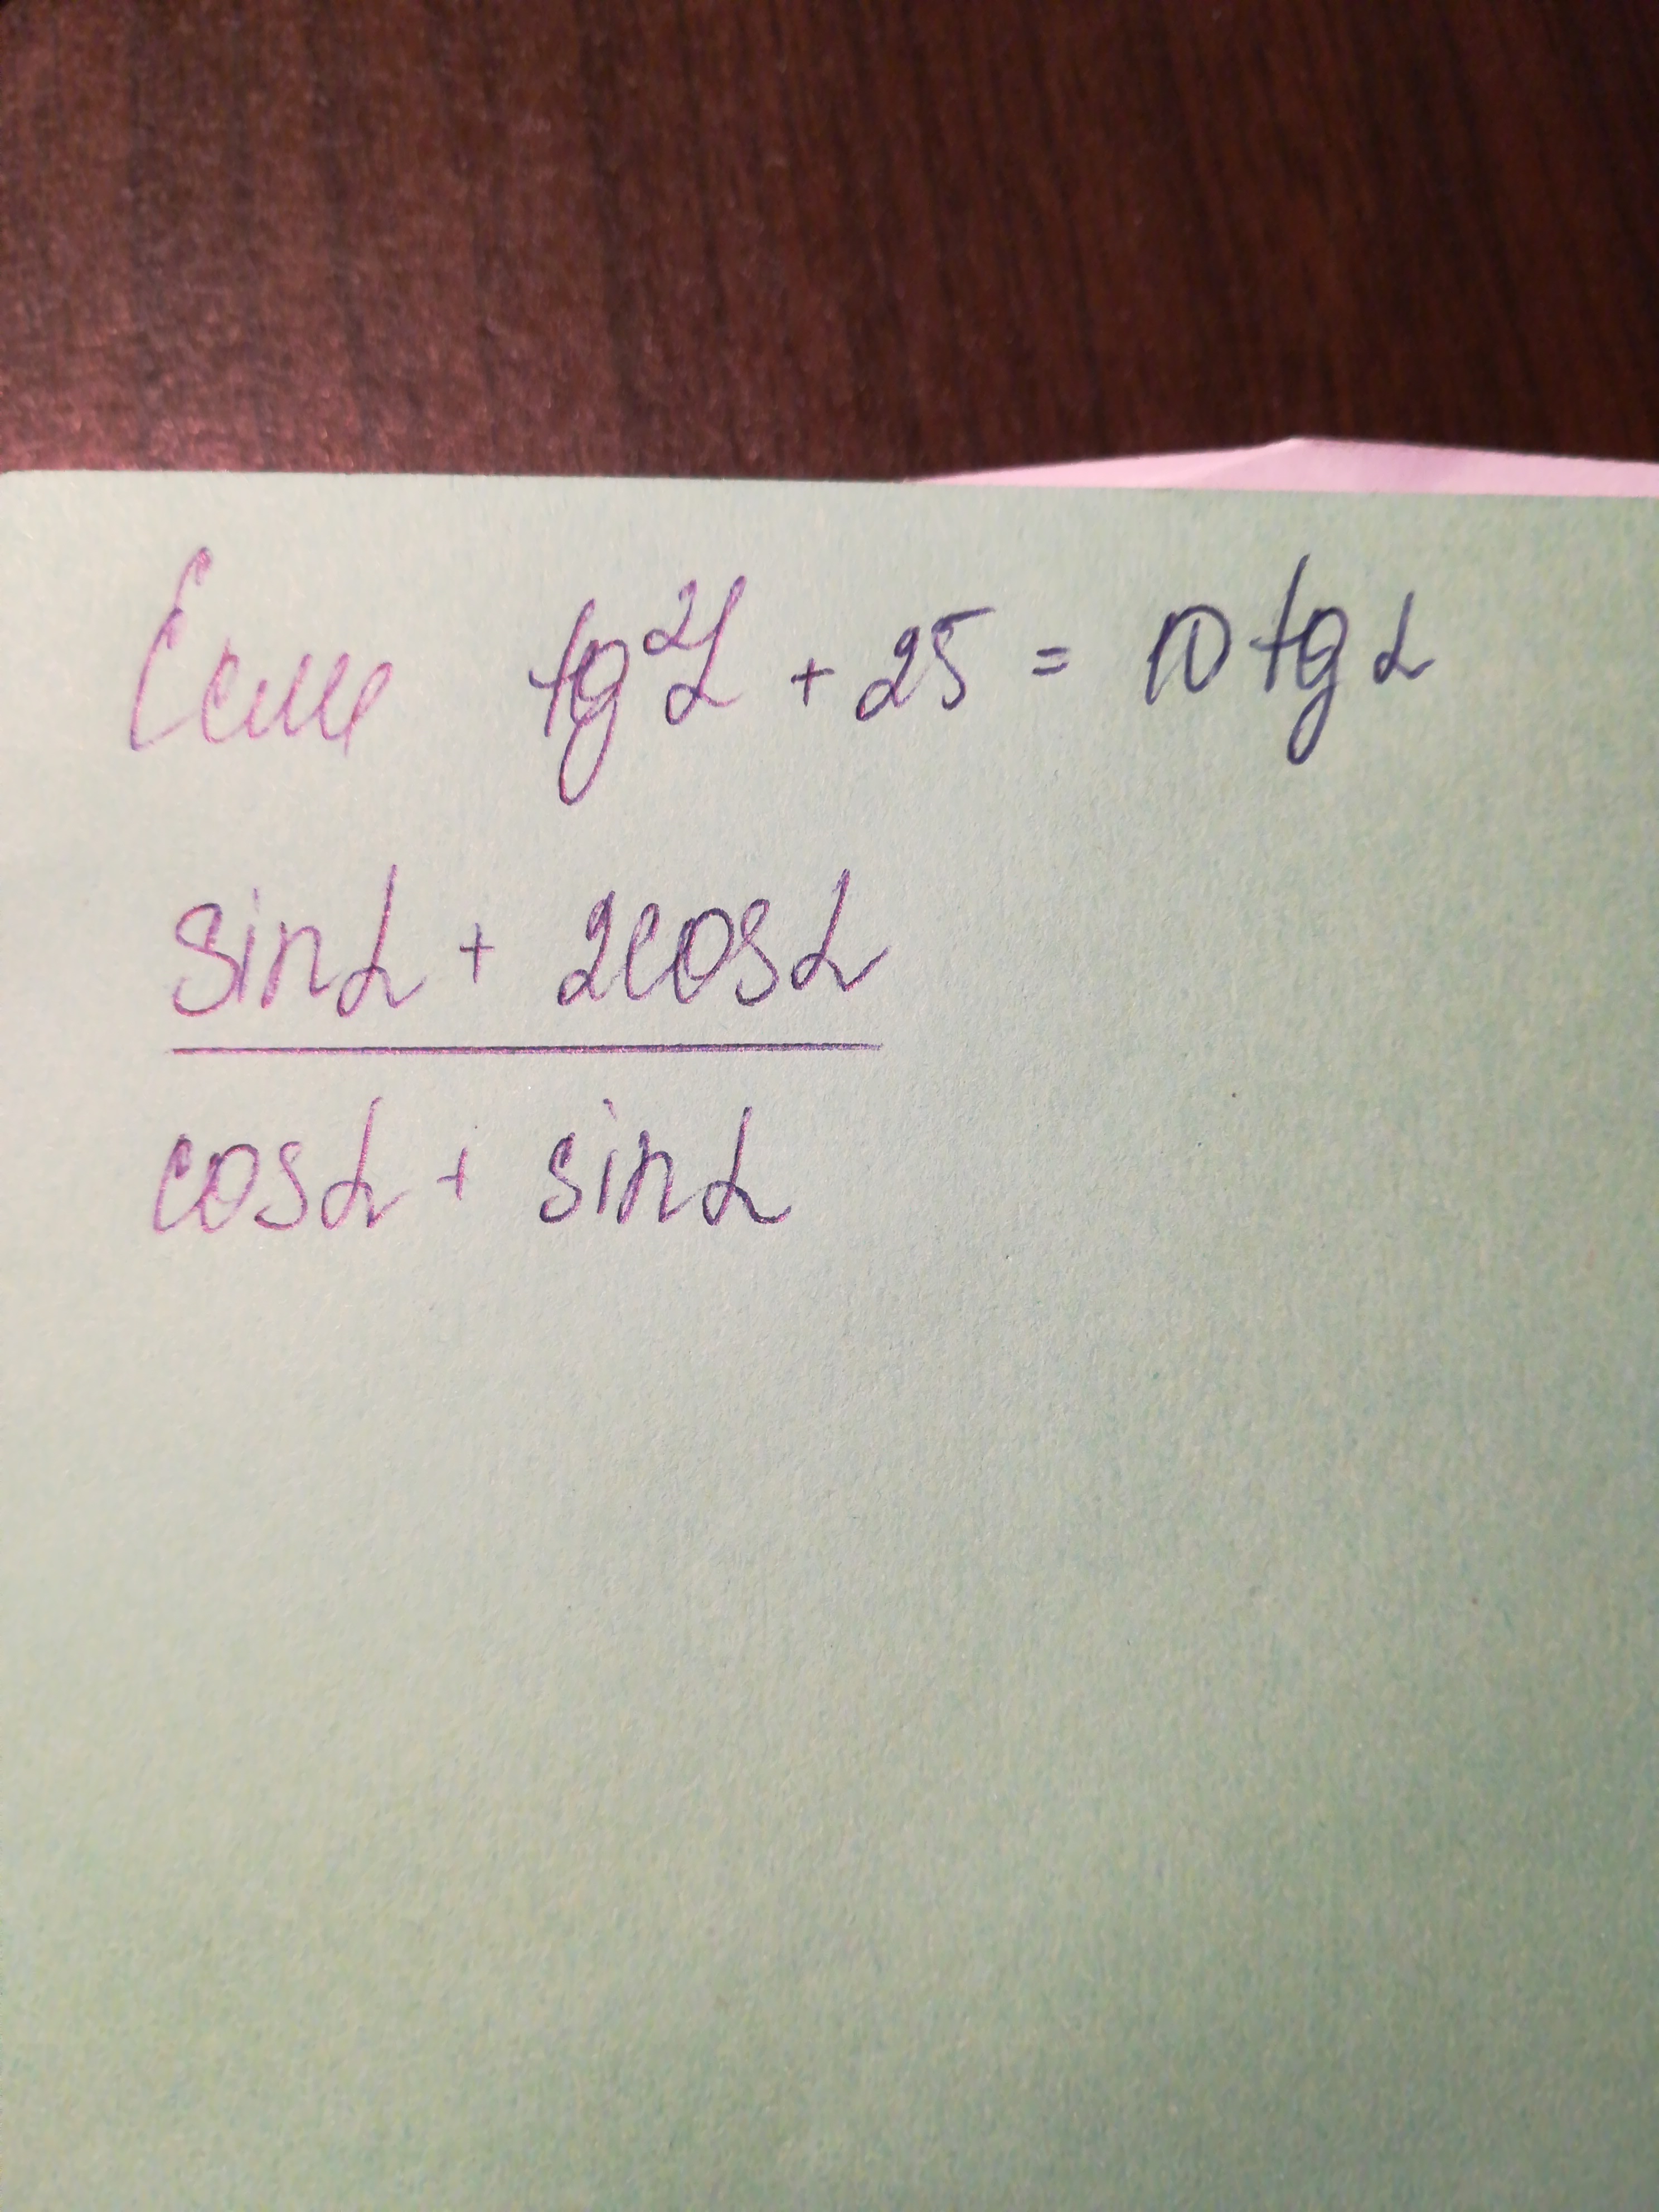 Если tg²α + 25 = 10 tg α
sinα + 2cosα
cosα + sinα